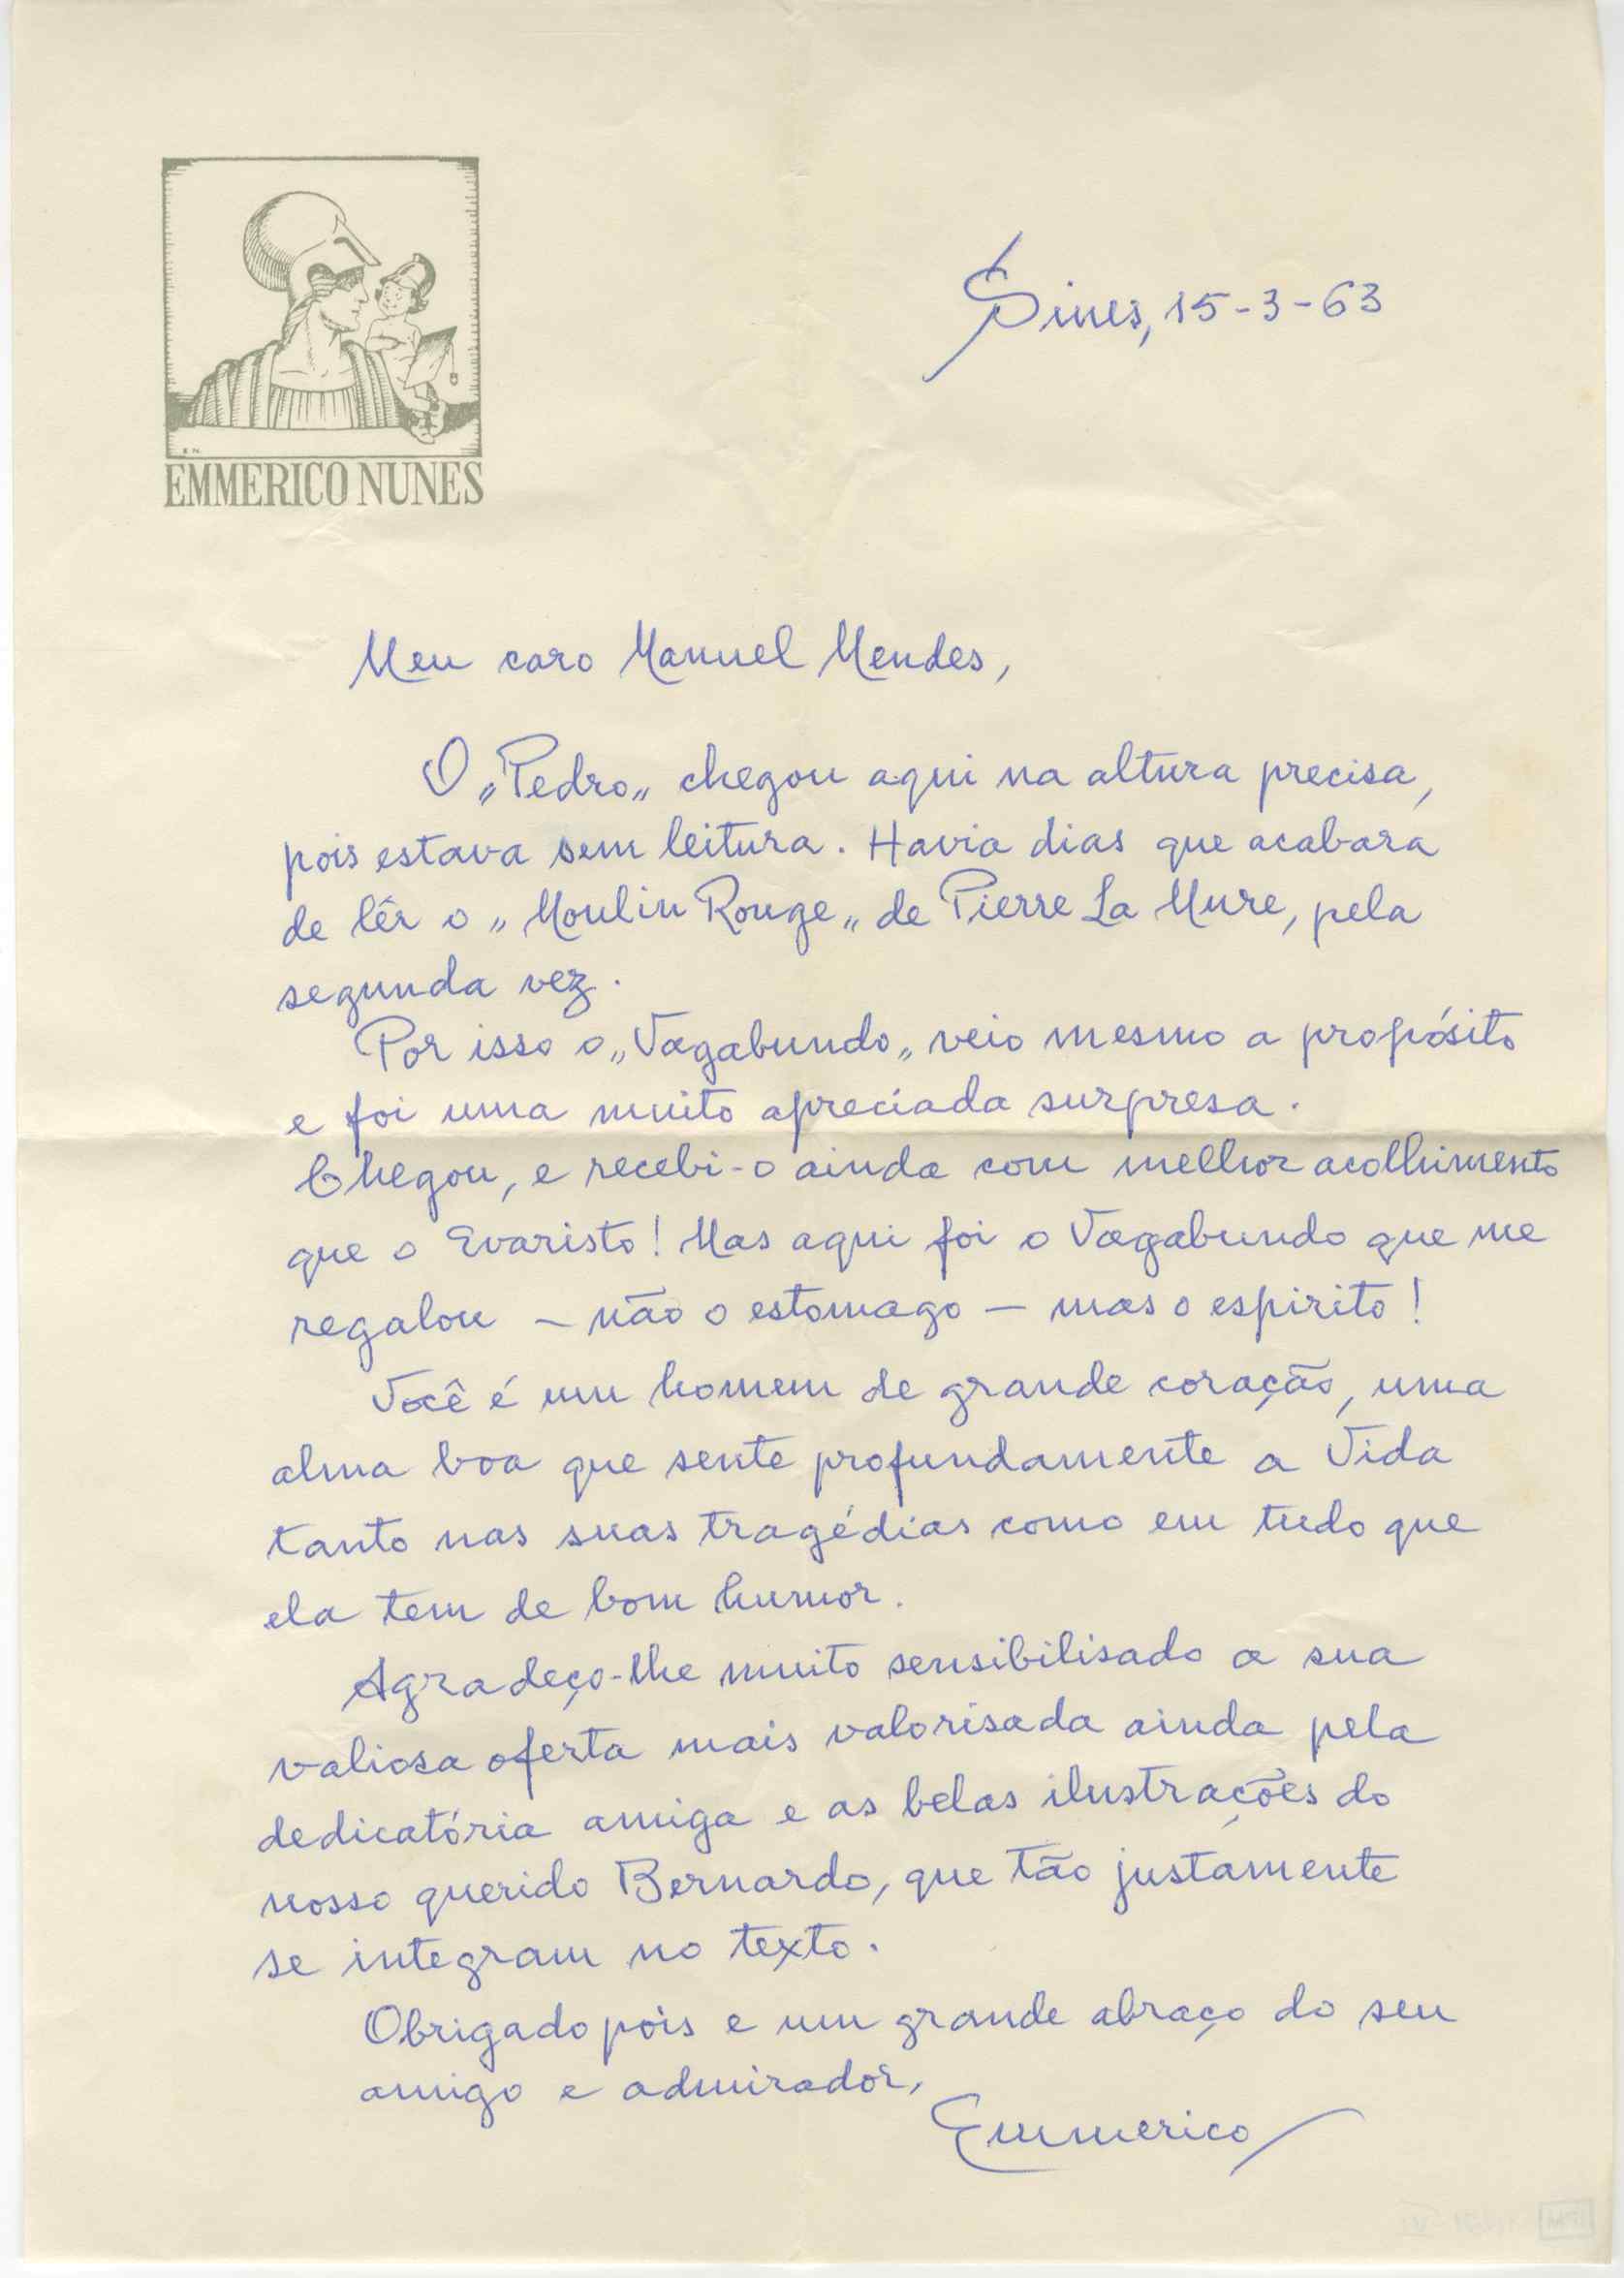 Sines, 15-3-63
EN
EMMERICO NUNES
Meu caro Manuel Mendes,
O „Pedro„ chegou aqui na altura precisa,
pois estava sem leitura. Havia dias que acabara
de lêr o „Moulin Rouge„ de Pierre La Mure, pela
segunda vez.
Por isso o „Vagabundo„ veio mesmo a propósito
e foi uma muito apreciada surpresa.
Chegou, e recebi-o ainda com melhor acolhimento
que o Evaristo! Mas aqui foi o Vagabundo que me
regalou – não o estomago – mas o espirito!
Você é um homem de grande coração, uma
alma boa que sente profundamente a Vida
tanto nas suas tragédias como em tudo que
ela tem de bom humor.
Agradeço-lhe muito sensibilisado a sua
valiosa oferta mais valorisada ainda pela
dedicatória amiga e as belas ilustrações do
nosso querido Bernardo, que tão justamente
se integram no texto.
Obrigado pois e um grande abraço do seu
amigo e admirador,
Emmerico